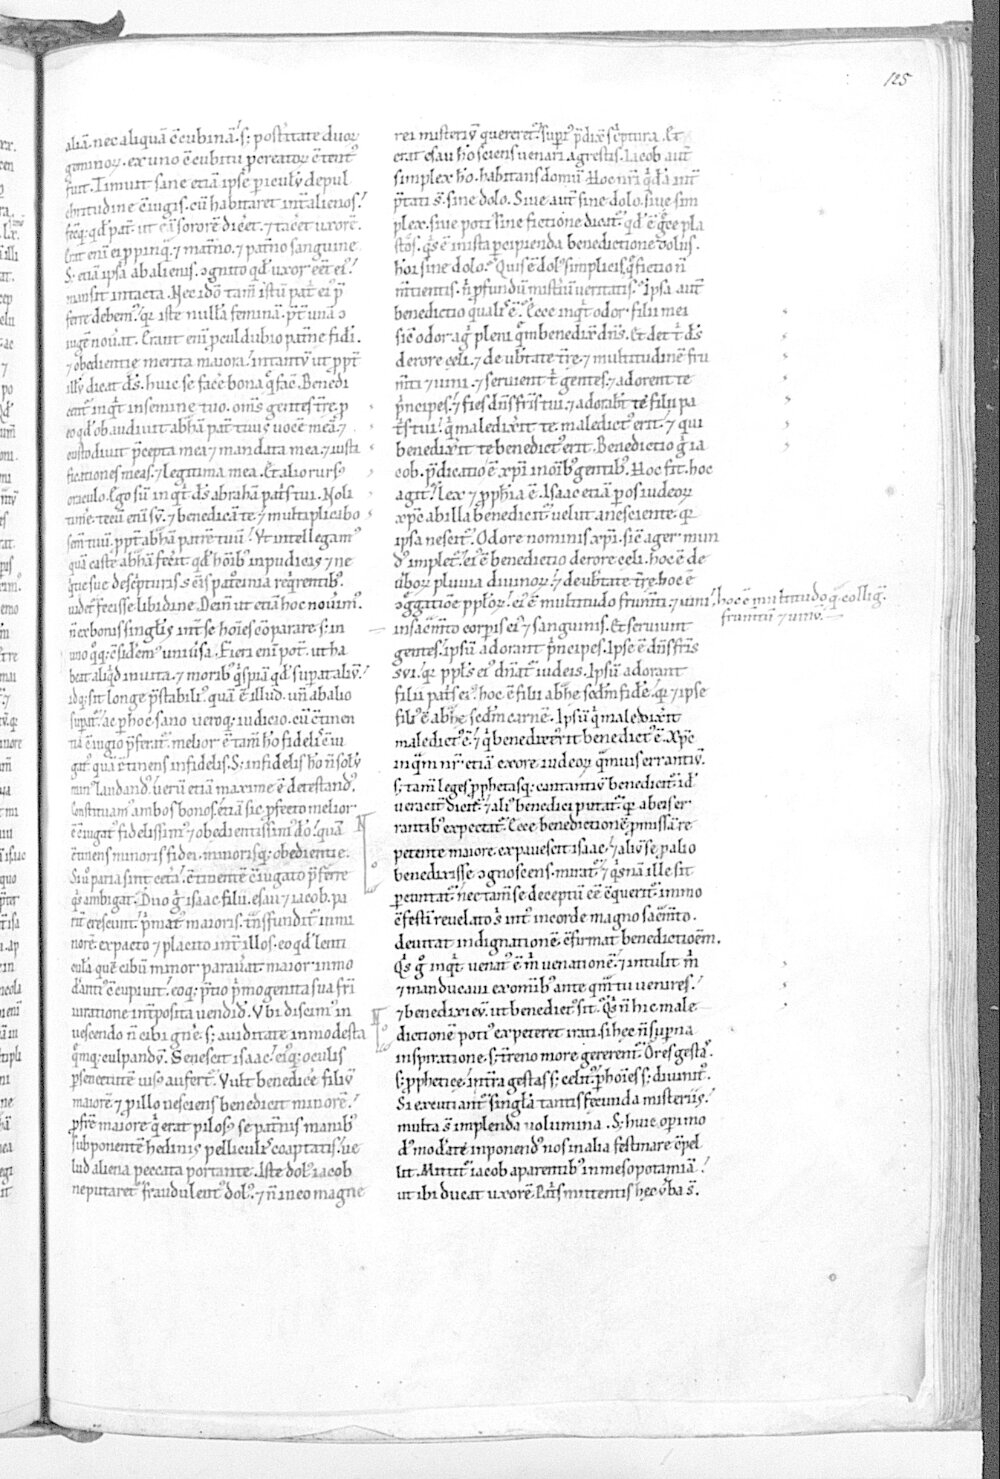 125
aliā. nec aliquā c̄cubinā. s; post itate duoꝝ
geminoꝝ. ex uno c̄cubitu ꝓcreatoꝝ c̄tent᾽
fuit. Timuit sane etiā ipse ꝑiculū depul
chritudine c̄iugis. cū habitaret int̄ alienos.
fecitq; qd̄ pat̄. ut eā sororē dicēt. ⁊ tacēt uxorē.
Erat enī ei ꝓpinq; ⁊ mat̄no. ⁊ pat̄no sanguine
S; etiā ipsa ab alienis. ↄgnito qd̄ uxor eēt ei᾽.
mansit intacta. Nec ido tam̄ istū pat̄ ei᾽ p̄
ferre debem᾽. qꝛ iste nullā feminā. p̄t̄ unā ↄ
iugē nouāt. Erant enī ꝓcul dubio pat̄ne fidei.
⁊ obedientie merita maiora. intantū ut ꝓpt̄
illū dicat ds̄. huic se facēe bona q̄ facē. Benedi
cent᾽ inqt̄ in semine tuo. om̄s gentes t̄re. ꝓ
eo qd̄ obaudiuit abhā pat̄ tuus uocē meā. ⁊
custodiuit p̄cepta mea ⁊ mandata mea. ⁊ iusti
ficationes meas. ⁊ legitima mea. Et alio rurs᾽
oraculo. Ego sū inqt̄ ds̄ abrahā pat̄s tui. Noli
tim̄e. tecū enī sū. ⁊ benedicā te. ⁊ multiplicabo
sem̄ tuū. ꝓpt̄ abhā patrē tuū. Vt intellegam᾽
quā caste abhā fēcit. qd̄ hōib᾽ inpudicis ⁊ ne
quitie sue de scpturis s̄cis pat̄cinia req̄rentib᾽.
uidet᾽ fecisse libidine. Dein̄ ut etiā hoc nouim᾽.
n̄ ex bonis singlis int̄ se hōies c̄parare. s; in
uno qq; c̄sidem᾽ uniūsa. Fieri enī pot̄. ut ha
beat aliqd̄ in uita. ⁊ morib᾽ qspiā qd̄ suꝑat aliū.
idq; sit longe p̄stabili᾽ quā ē illud. uñ ab alio
suꝑat᾽. ac ꝑ hoc sano ueroq; iudicio. cū c̄tinen
tia c̄iugio p̄ferat᾽. melior ē tam̄ hō fidelis c̄iu
gat᾽ quā c̄tinens infidelis. S; infidelis hō n̄ solū
min᾽ laudand᾽. uerū etiā maxime ē detestand᾽.
Constituam᾽ ambos bonos. etiā sic ꝓfecto melior
ē c̄iugat᾽ fidelissim᾽ ⁊ obedientissim᾽ dō. quā
c̄tinens minoris fidei. minorisq; obedientie.
Si ū paria sint cetā. c̄tinentē c̄iugato p̄ferre
qs ambigat. Duo g̊ isaac filii. esau ⁊ iacob. pa
rit̄ crescunt. P̄mat᾽ maioris. t̄nsfundit᾽ in mi
norē. ex pacto ⁊ placito int̄ illos. eo qd̄ lenti
culā quē cibū minor parauāt. maior inmo
dāt᾽ c̄cupiuit. eoq; p̄tio p̄mogenita sua fr̄i
iuratione int̄posita uendid̄. Vbi discim᾽ in
uescendo n̄ cibi gn̄e. s; auiditate inmodesta
q̄mq; culpandū. Senescit isaac. eiq; oculis
ꝑ senectutē uis᾽ aufert᾽. Vult benedice filiū
maiorē. ⁊ ꝓ illo nesciens benedicit minorē.
ꝓ fr̄e maiore q̄ erat pilos᾽ se pat̄nis manib᾽
subponentē hedinis pelliculis coaptatis. ue
lud aliena peccata portante. Iste dol᾽ iacob
ne putaret᾽ fraudulent᾽ dol᾽. ⁊ n̄ in eo magne
rei misteriū quereret᾽. supi᾽ p̄dixit sc̄ptura. Et
erat esau hō sciens uenari agrestis. Iacob aut̄
simplex hō. habitans domū. Hoc nr̄i qd̄ā int̄
p̄tati s̄. sine dolo. Siue aut̄ sine dolo. siue sim
plex. siue poti᾽ sine fictione dicat᾽. qd̄ ē grece pla
stos. qs ē in ista ꝑcipienda benedictione dolus.
hōi sine dolo. Quis ē dol᾽ simplicis. q̄ fictio n̄
m̄tientis. n̄ ꝓfundū mist̄iū ueritatis. Ipsa aut̄
benedictio qualis ē. Ecce inqt̄ odor filii mei
sic̄ odor agi̇ pleni que benedixit dn̄s. Et det t̄ ds̄
de rore celi. ⁊ de ubtate t̄re. ⁊ multitudinē fru
m̄ti ⁊ uini. ⁊ seruient t̄ gentes. ⁊ adorent te
p̄ncipes. ⁊ fies dn̄s fr̄is tui. ⁊ adorabt̄ te filii pa
t̄s tui. q̄ maledixit te. maledict᾽ erit. ⁊ qui
benedixit te benedict᾽ erit. Benedictio g̊ ia
cob. p̄dicatio ē xp̄i in oīb᾽ gentib᾽. Hoc fit. hoc
agit᾽. lex ⁊ ꝓphīa ē. Isaac etiā ꝑ os iudeoꝝ
xp̄c ab illa benedicit᾽ uelut a nesciente. qꝛ
ipsa nescit᾽. Odore nominis xp̄i. sic̄ ager mun
d᾽ implet᾽. ei᾽ ē benedictio de rore celi. hoc ē de
ūboꝝ pluuia diuinoꝝ. ⁊ de ubtate t̄re. hoc ē
ↄggatiōe pploꝝ. ei᾽ ē multitudo frum̄ti. ⁊ uini. hoc ē multitudo q̄ colligit
frum̄tū ⁊ uinū.
in sac̄m̄to corꝑis ei᾽ ⁊ sanguinis. Et seruiunt
gentes. ipsū adorant p̄ncipes. Ipse ē dn̄s fr̄is
sui. qꝛ ppl̄s ei᾽ dn̄at᾽ iudeis. Ipsū adorant
filii pat̄s ei᾽. hoc ē filii abhe scd̄m fidē. qꝛ ⁊ ipse
fili᾽ ē abhe scd̄m carnē. Ipsū q̄ maledixit
maledict᾽ ē. ⁊ q̄ benedixerit benedict᾽ ē. Xp̄c
inq̄m nr̄ etiā ex ore iudeoꝝ q̄muis errantiū.
s; tam̄ leges ꝓphetasq; cantantiū benedicit᾽. id᾽
uerac̄ dicit᾽. ⁊ ali᾽ benedici putat᾽. qꝛ ab eis er
rantib᾽ expectat᾽. Ecce benedictionē ꝓmissā re
petente maiore. expauescit isaac. ⁊ aliū se ꝓ alio
benedixisse ↄgnoscens. mirat᾽. ⁊ qsnā ille sit
ꝑcunctat᾽. nec tam̄ se deceptū eē c̄querit᾽. immo
c̄festī reuelato s̄ int᾽ in corde magno sac̄m̄to.
deuitat indignationē. c̄firmat benedictioēm.
Qs g̊ inqt̄ uenat᾽ ē m̄ uenationē. ⁊ intulit m̄
⁊ manducaui ex omīb᾽ ante qm̄ tu uenires.
⁊ benedixi eū. ut benedict᾽ sit. Qs n̄ hic male
dictionē poti᾽ expeteret irati. si hec n̄ suꝑna
inspiratione. s; t̄reno more gererent᾽. O res gestas.
s; ꝓphetice. in t̄ra gestas s; celit᾽. ꝑ hōies s; diuinit᾽.
Si excutiant᾽ singla tantis fecunda misteriis.
multa s̄ implenda uolumina. S; huic opimo
d᾽ modāte inponend᾽ nos in alia festinare c̄pel
lit. Mittit᾽ iacob a parentib᾽ in mesopotamiā.
ut ibi ducat uxorē. Pat̄s mittentis hec ūba s̄.